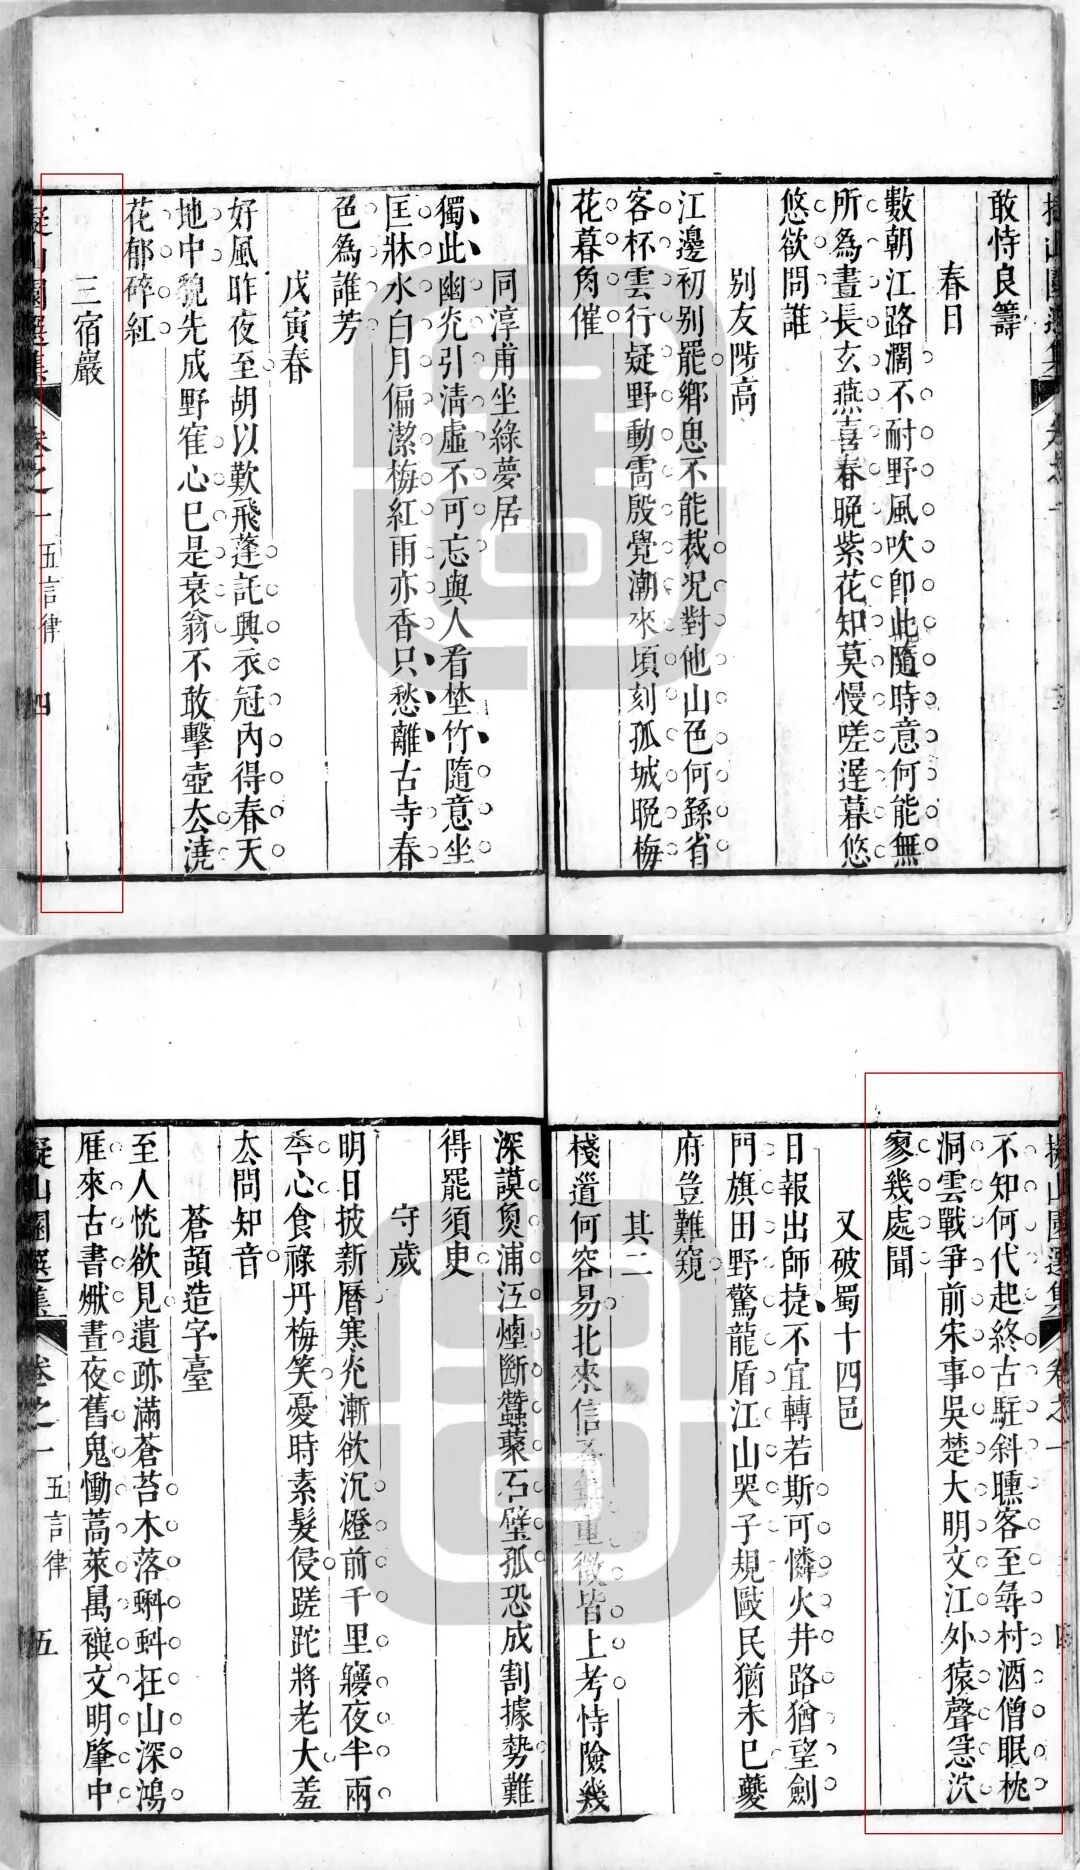 擬山園選集 卷之一
敢恃良籌
春日
數朝江路濶不耐野風吹卽此隨時意何能無
所為晝長玄燕喜春晚紫花知莫慢嗟遲暮悠
悠欲問誰
别友陟高
江邊初别罷鄉思不能裁况對他山色何繇省
客杯雲行疑野動雷殷覺潮來頃刻孤城晚梅
花暮角催
同淳甫坐綠夢居
獨此幽光引清虛不可忘與人看埜竹隨意坐
匡牀水白月偏潔梅紅雨亦香只愁離古寺春
色為誰芳
戊寅春
好風昨夜至胡以歎飛蓬託興衣冠內得春天
地中貌先成野隺心已是衰翁不敢擊壺去澆
花郁碎紅
三宿巖
擬山園選集 卷之一 五言律 四
擬山園選集 卷之一 四
不知何代起終古駐斜曛客至尋村酒僧眠枕
洞雲戰爭前宋事吳楚大明文江外猿聲急泬
寥幾處聞
又破蜀十四邑
日報出師捷不宜轉若斯可憐火井路猶望劍
門旗田野驚龍盾江山哭子規敺民猶未已夔
府豈難窺
其二
棧道何容易北來信重徵皆上考恃險幾
深謨魚浦江煙斷蠶藂石壁孤恐成割據勢難
得罷須臾
守歲
明日披新曆寒光漸欲沉燈前千里夢夜半兩
年心食祿丹梅笑憂時素髮侵蹉跎將老大羞
去問知音
蒼頡造字臺
至人恍欲見遺跡滿蒼苔木落蝌蚪在山深鴻
雁來古書燬晝夜舊鬼慟蒿萊萬禩文明肇中
擬山園選集 卷之一 五言律 五